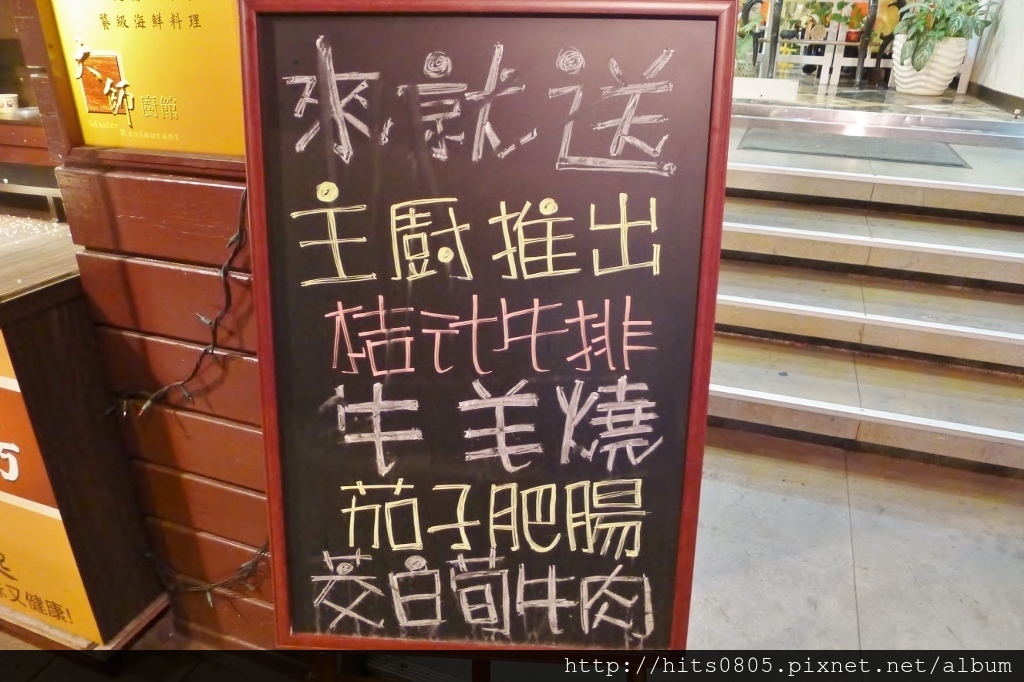 藝級海鮮料理
大師廚館
Master Restaurant
來就送
主廚推出
桔汁牛排
牛羊燒
茄子肥腸
茭白筍牛肉
又健康!
http://hits0805.pixnet.net/album